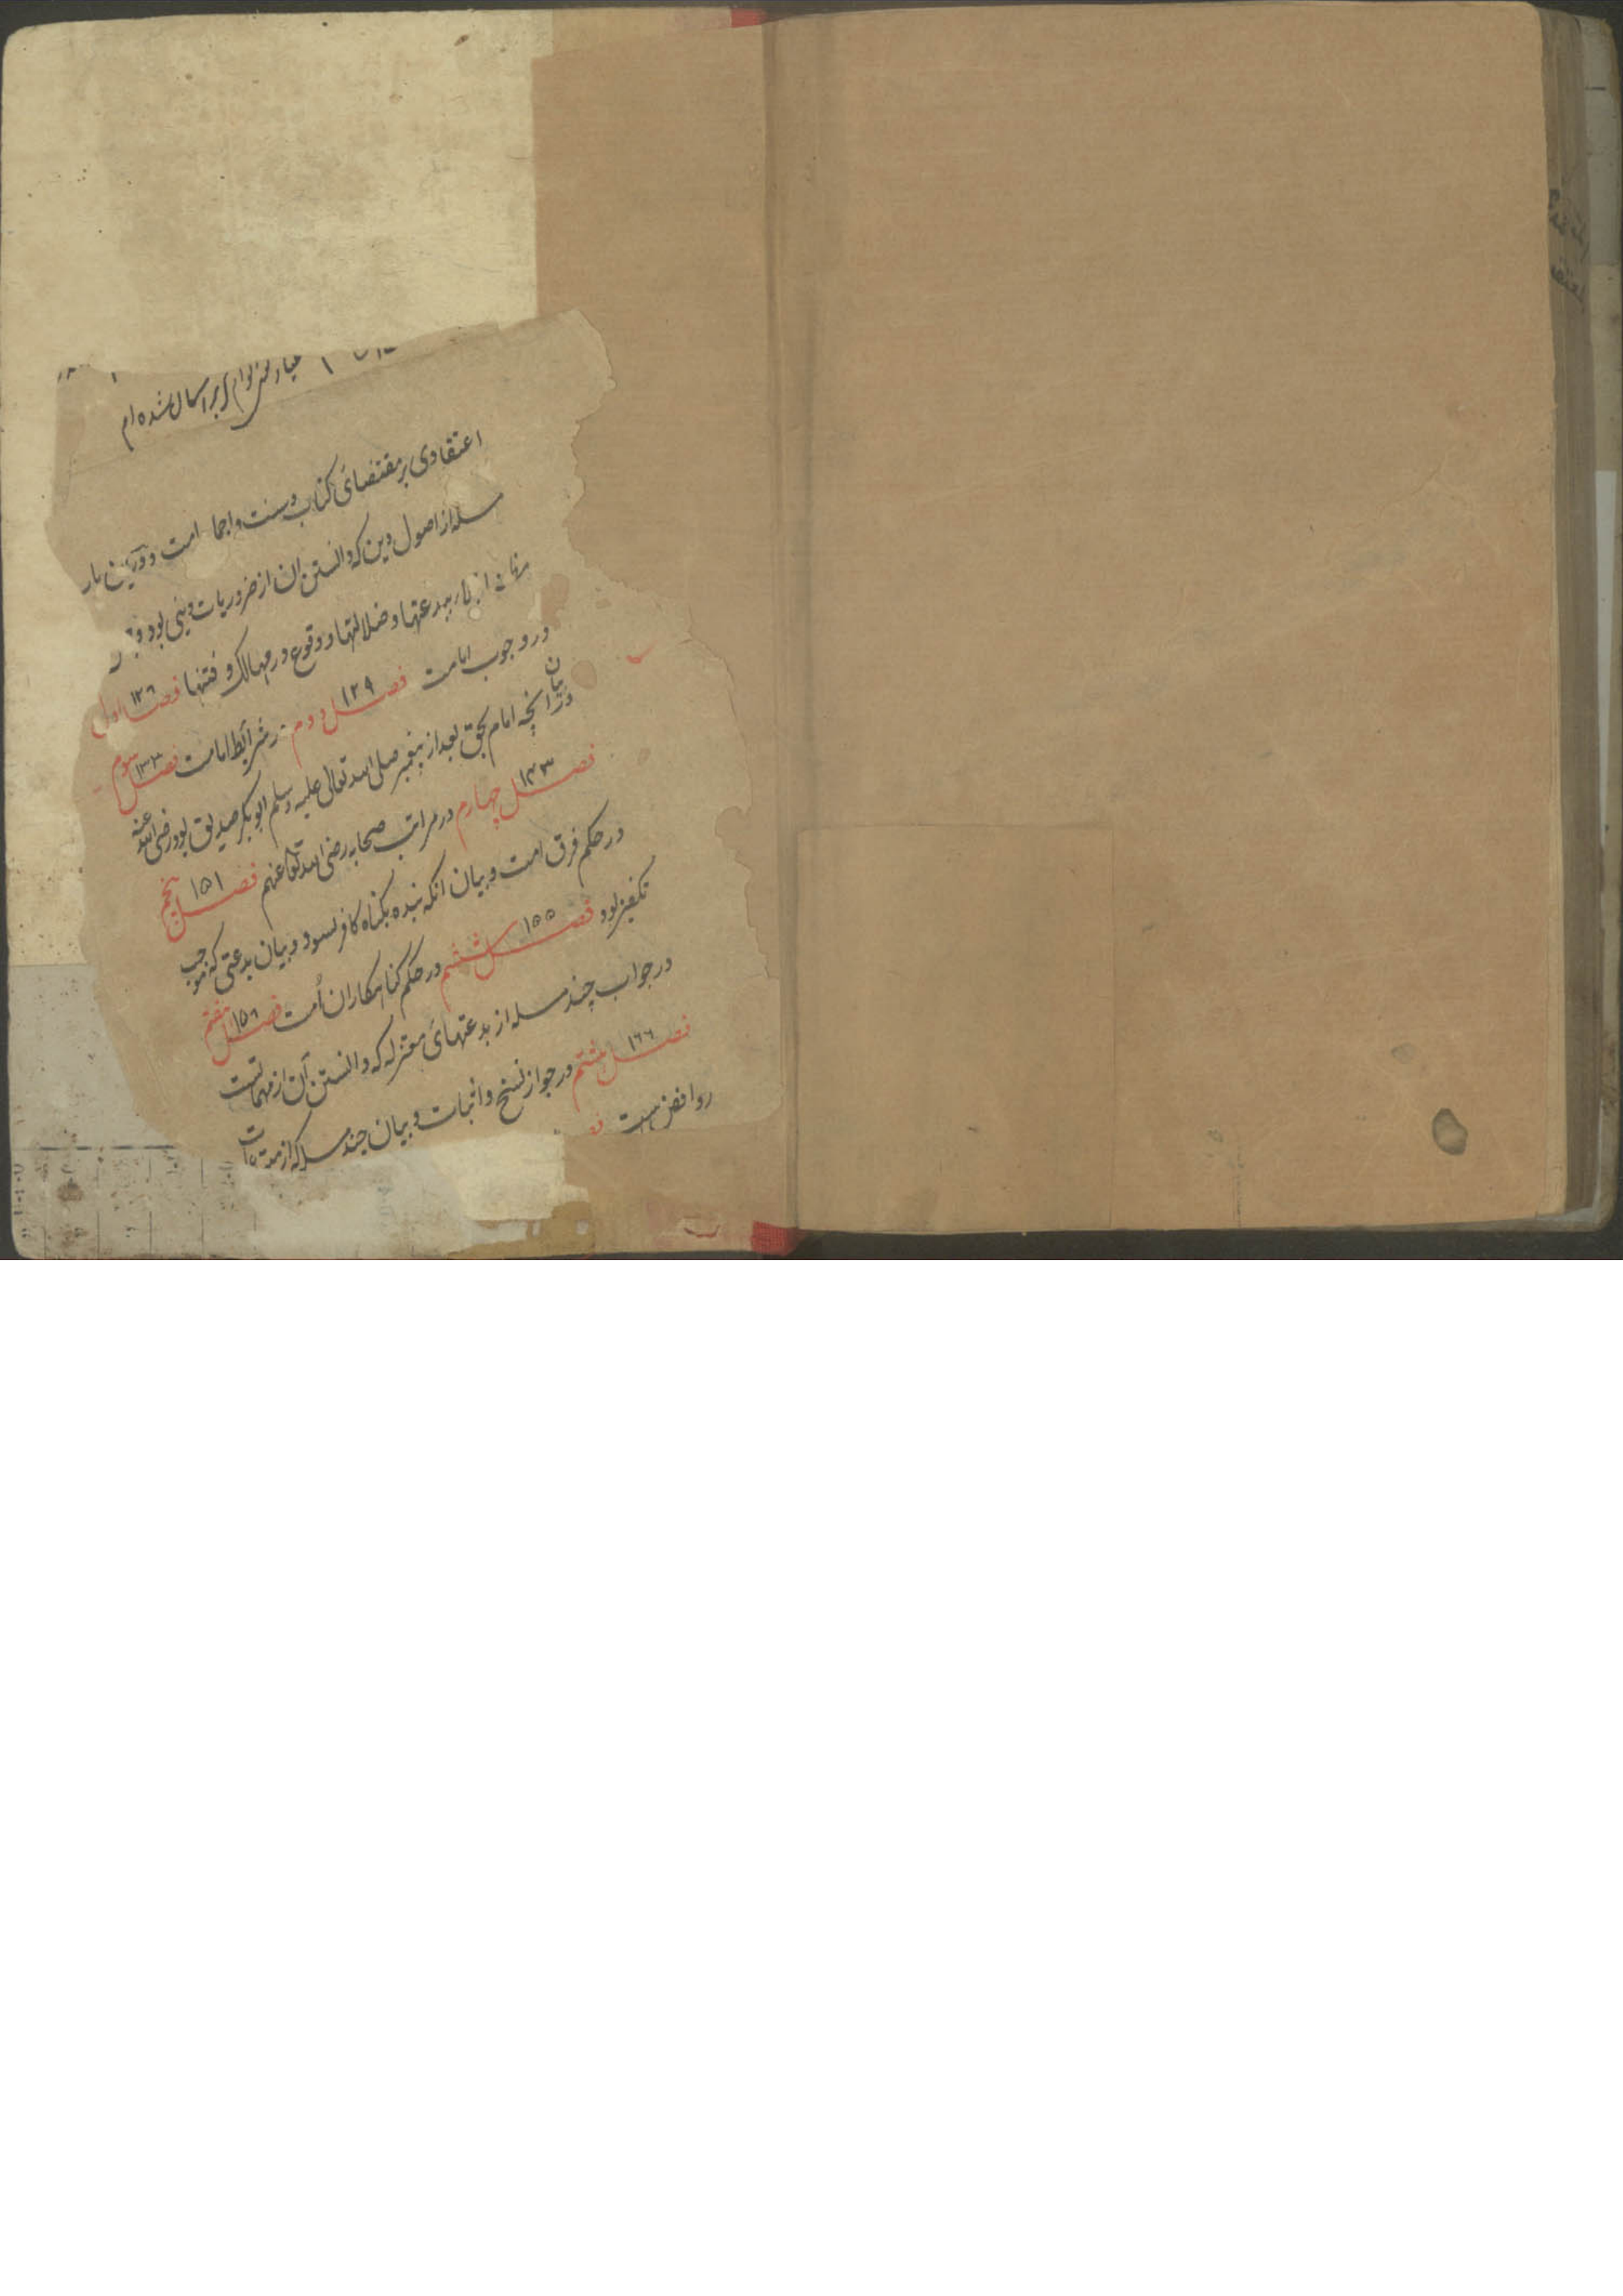 شده ام
اعتقادی بر مقتضای کتاب و سنت و اجما امت و درین
مسله از اصول دین که دانستن ان از ضروریات دینی بود و
بدعتها و ضلالتها و وقوع در مهالک و فتنها فصل اول ١٢٦
در وجوب امامت فصل دوم ١٢٩ در شرائط امامت فصل سوم ١٣٣
در بیان انچه امام بحق بعد از پیغمبر صلی الله تعالی علیه وسلم ابوبکر صدیق بود رضی الله عنه
فصل چهارم ١٤٣ در مراتب صحابه رضی الله تعا عنهم فصل پنجم ١٥١
در حکم فرق امت و بیان انکه بنده بکناه کافر نسود و بیان بدعتی که موجب
تکفیر بود فصل ششم ١٥٥ در حکم کناهکاران اُمت فصل هفتم ١٥٦
در جواب چند مسله از بدعتهائ معتزله که دانستن آن از مهمات است
فصل هشتم ١٦٦ در جواز نسخ و اثبات و بیان چند مسله که از
روافض ست